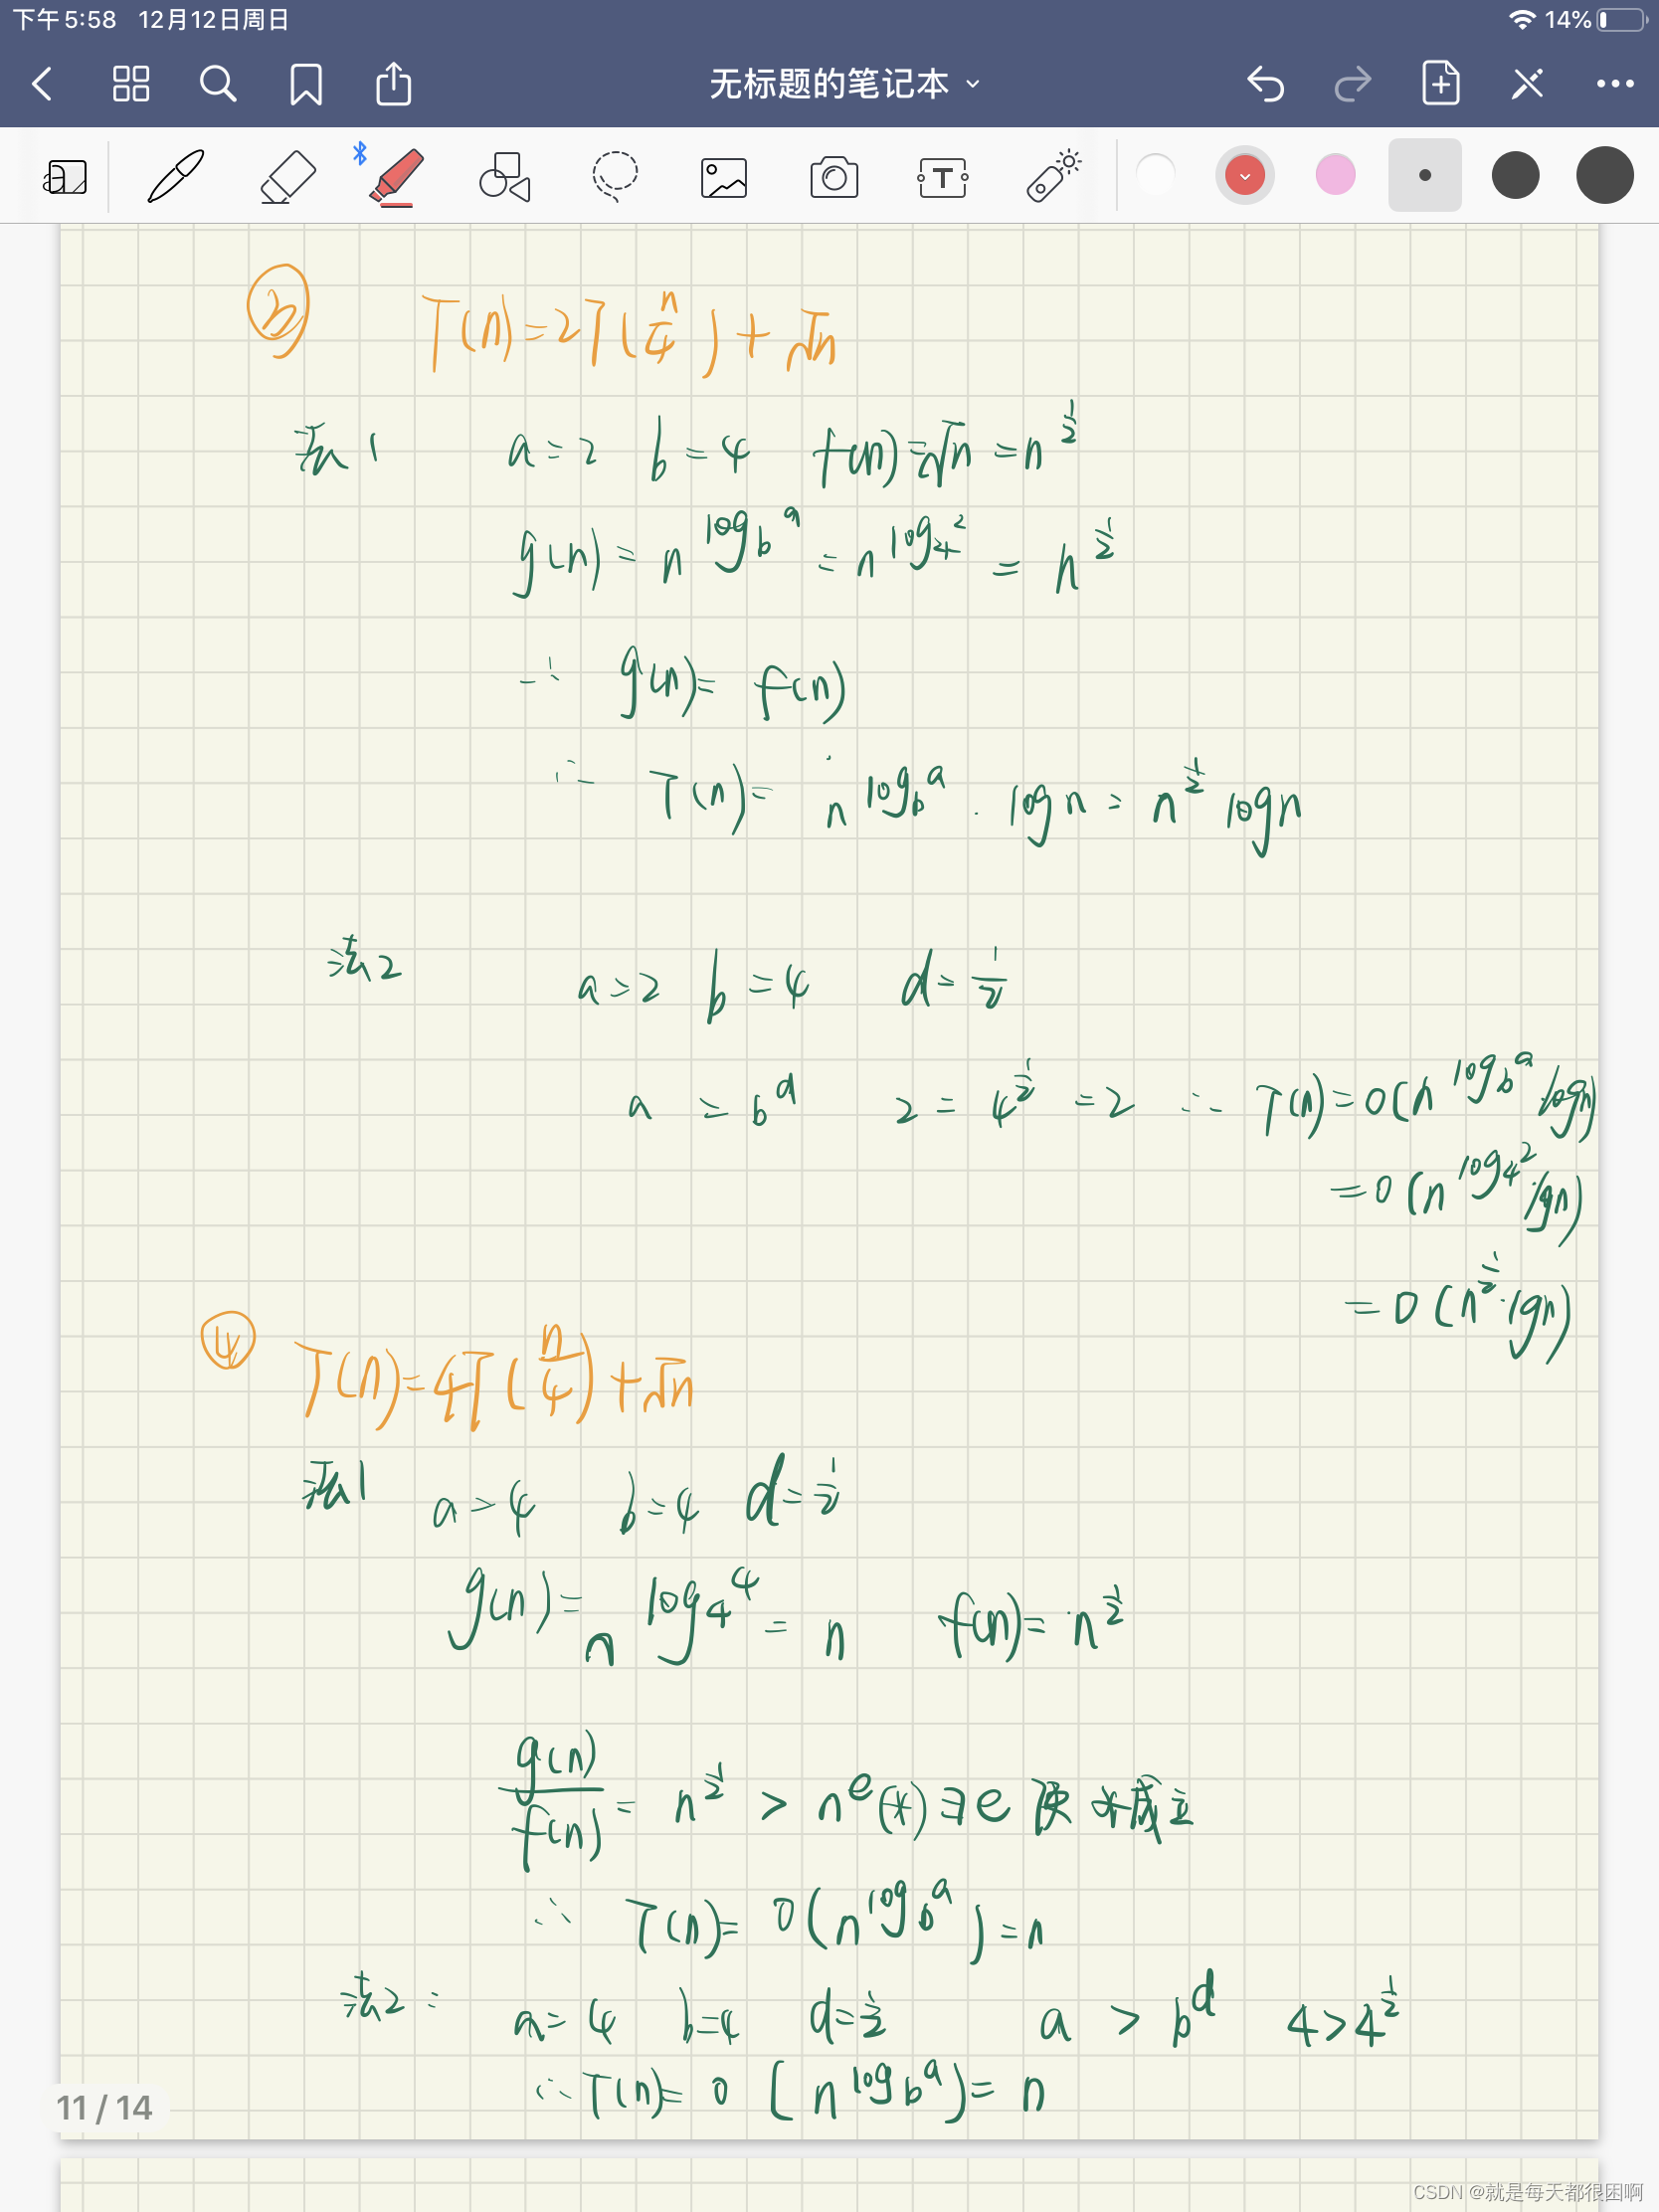 下午5:58 12月12日周日 14%
无标题的笔记本
T
③ T(n)=2T(n/4)+√n
法1 a=2 b=4 f(n)=√n=n^½
g(n)=n^log_b^a=n^log_4^2=n^½
∵ g(n)=f(n)
∴ T(n)=n^log_b^a·logn=n^½logn
法2 a=2 b=4 d=½
a=b^d 2=4^½=2 ∴ T(n)=O(n^log_b^a·logn)
=O(n^log_4^2·lgn)
=O(n^½·lgn)
④ T(n)=4T(n/4)+√n
法1 a=4 b=4 d=½
g(n)=n^log_4^4=n f(n)=n^½
g(n)/f(n)=n^½>n^e(*)∃e使*成立
∴ T(n)=O(n^log_b^a)=n
法2: a=4 b=4 d=½ a>b^d 4>4^½
∴T(n)=O(n^log_b^a)=n
11/14
CSDN @就是每天都很困啊